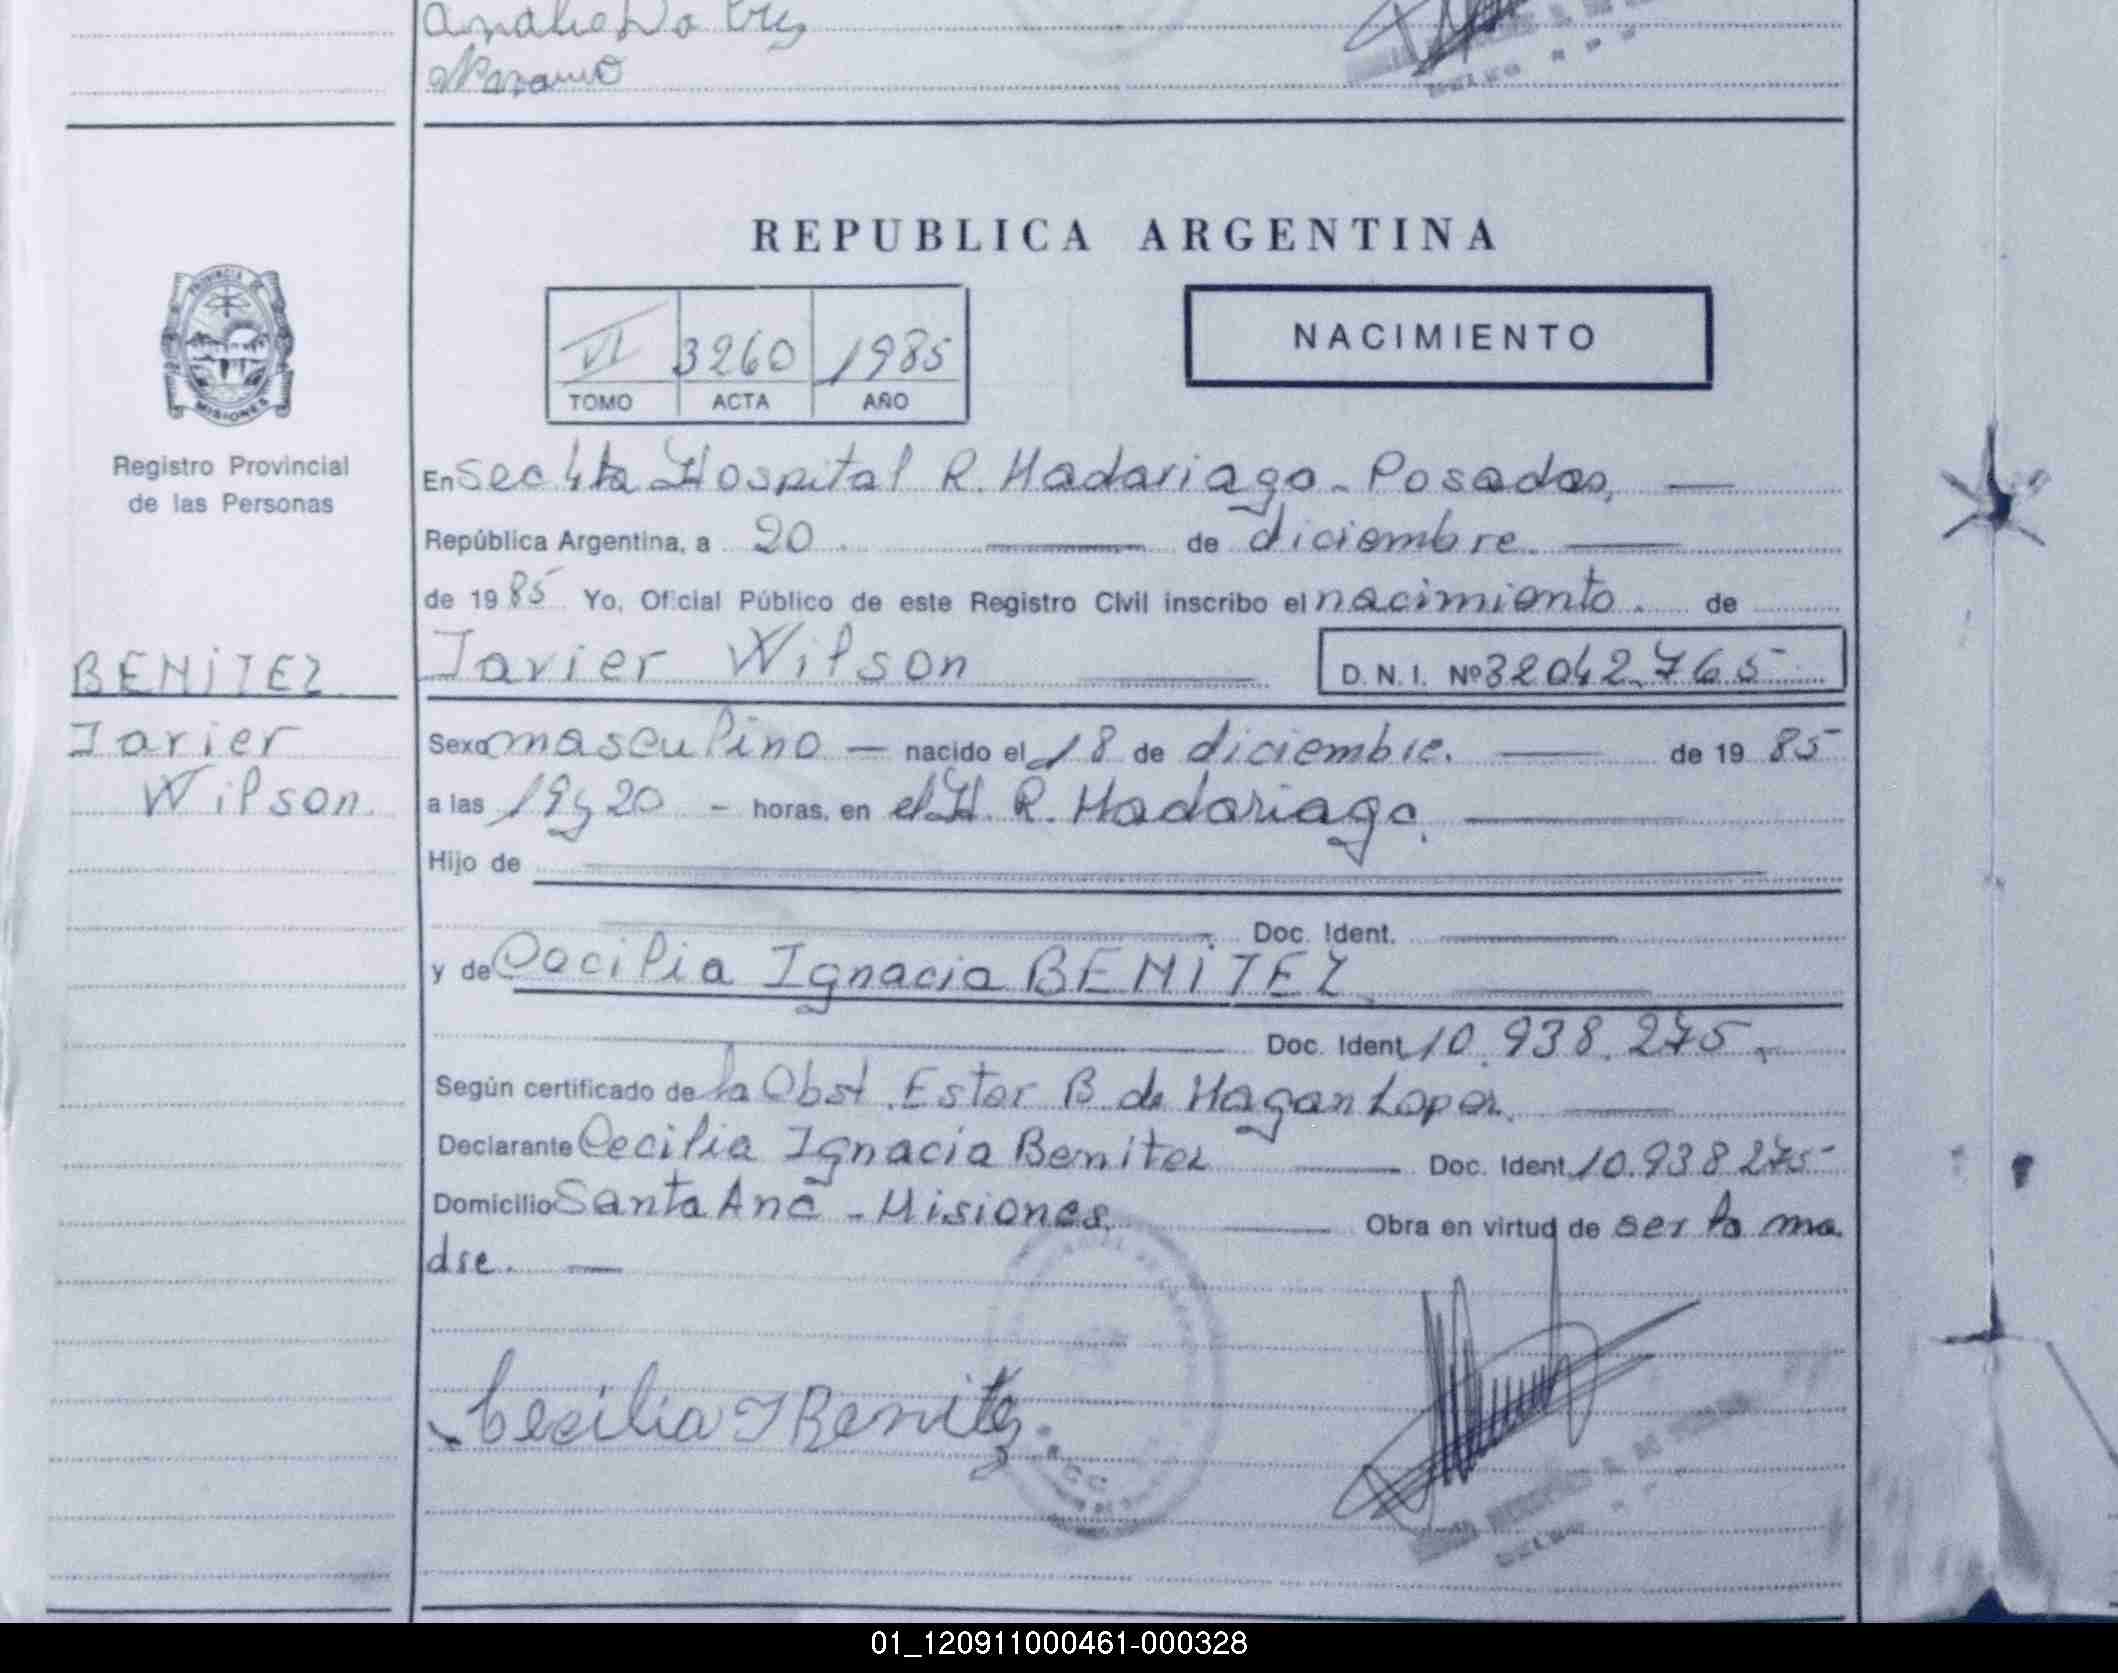 REPUBLICA ARGENTINA
VI 3260 1985
TOMO ACTA AÑO
NACIMIENTO
PROVINCIA DE
MISIONES
Registro Provincial
de las Personas
En Sec 4ta Hospital R. Madariaga - Posadas,
República Argentina, a 20 de diciembre
de 1985 Yo, Oficial Público de este Registro Civil inscribo el nacimiento de
Javier Wilson D. N. I. Nº 32042.765
BENITEZ
Javier
Wilson.
Sexo masculino nacido el 18 de diciembre. de 1985
a las 19 y 20 - horas, en el H. R. Madariaga.
Hijo de
Doc. Ident.
y de Cecilia Ignacia BENITEZ
Doc. Ident. 10.938.275.
Según certificado de la Obst. Ester B de
Declarante Cecilia Ignacia Benitez Doc. Ident. 10.938275
Domicilio Santa Ana - Misiones. Obra en virtud de ser la ma
dre.
Cecilia I Benitez
01_120911000461-000328